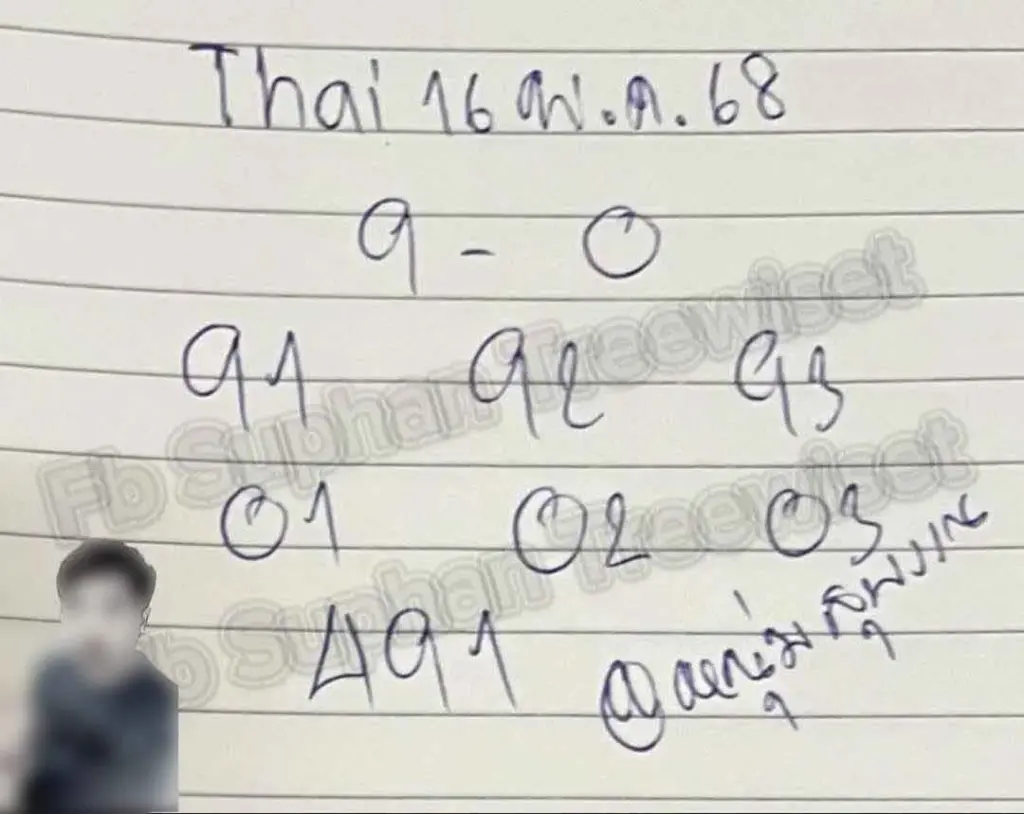 Thai 16 พ.ค. 68
9 - 0
91 92 93
01 02 03
491
หนุ่ม สุพรรณ
Fb Suphan Treewiset
Fb Suphan Treewiset